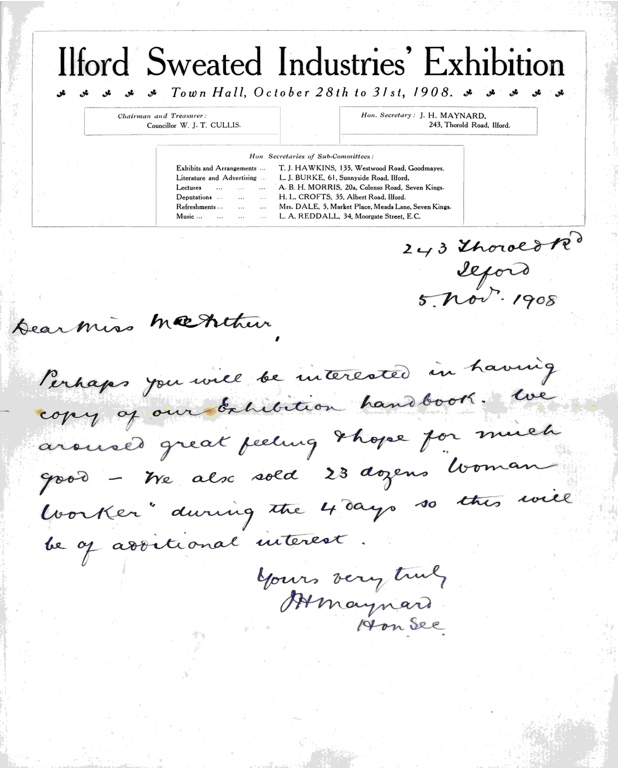 Ilford Sweated Industries' Exhibition
Town Hall, October 28th to 31st, 1908.
Chairman and Treasurer:
Councillor W. J. T. CULLIS.
Hon. Secretary: J. H. MAYNARD,
243, Thorold Road, Ilford.
Hon Secretaries of Sub-Committees:
Exhibits and Arrangements ... T. J. HAWKINS, 135, Westwood Road, Goodmayes.
Literature and Advertising ... L. J. BURKE, 61, Sunnyside Road, Ilford.
Lectures ... ... ... A. B. H. MORRIS, 20a, Colenso Road, Seven Kings.
Deputations ... ... ... H. L. CROFTS, 35, Albert Road, Ilford.
Refreshments ... ... ... Mrs. DALE, 5, Market Place, Meads Lane, Seven Kings.
Music ... ... ... ... L. A. REDDALL, 34, Moorgate Street, E.C.
243 Thorold Rd
Ilford
5. Nov. 1908
Dear Miss MacArthur,
Perhaps you will be interested in having
copy of our Exhibition handbook. We
aroused great feeling & hope for much
good – We also sold 23 dozens "Woman
Worker" during the 4 days so this will
be of additional interest.
Yours very truly
JHMaynard
Hon Sec.